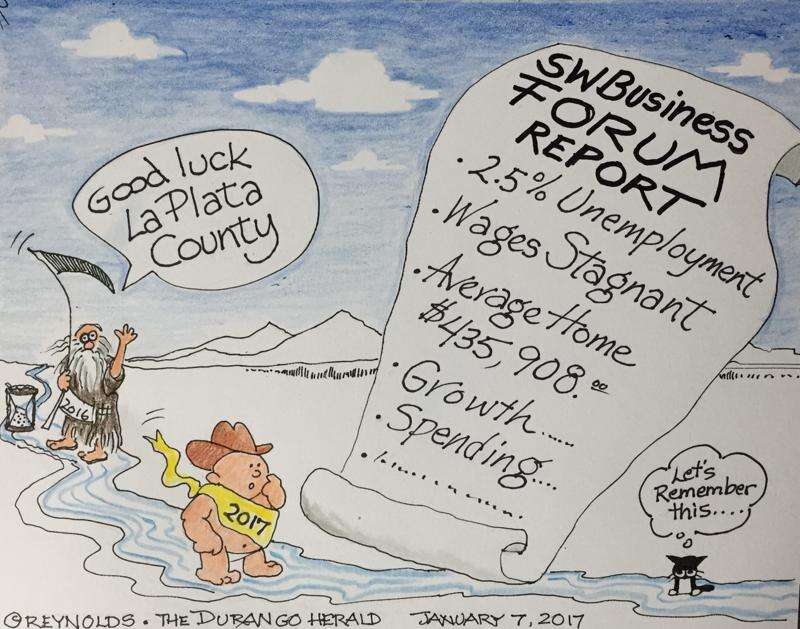 Good luck
LaPlata
County
2016
2017
SWBusiness
FORUM
REPORT
· 2.5% Unemployment
· Wages Stagnant
· Average Home
$435,908.00
· Growth.....
· Spending....
· ..............
Let's
Remember
this.....
©REYNOLDS · THE DURANGO HERALD JANUARY 7, 2017